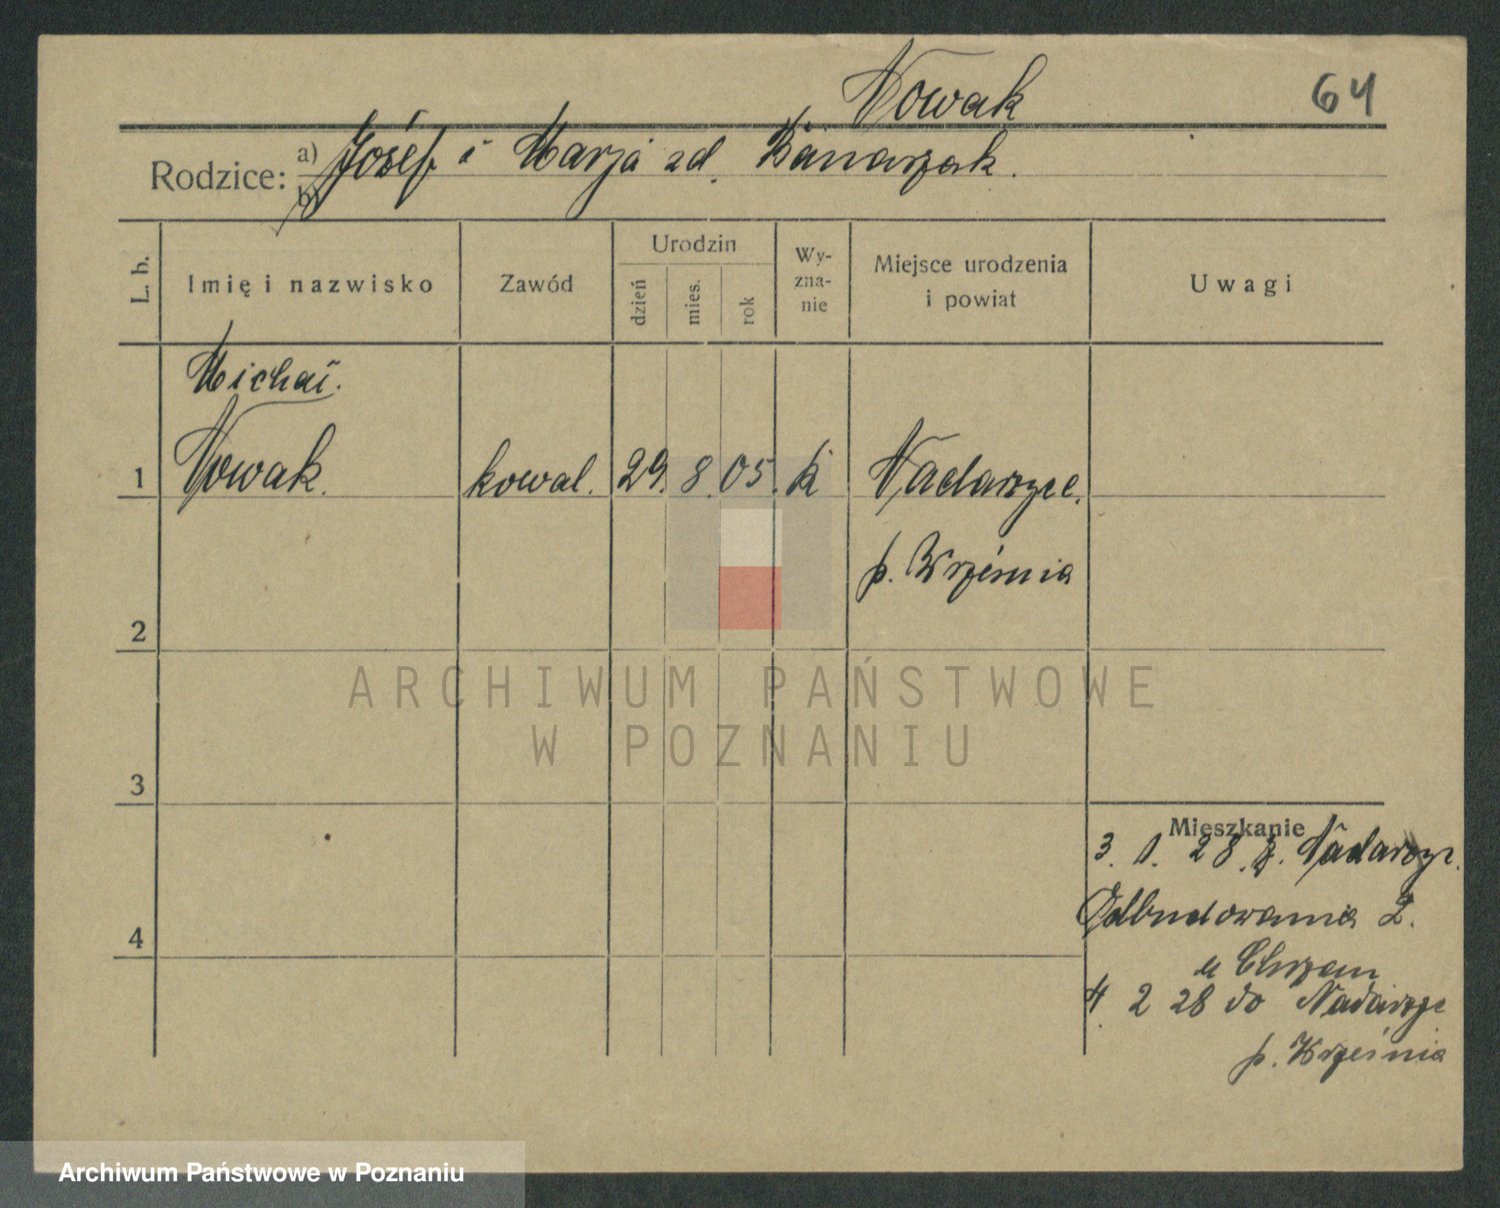 Nowak
64
Rodzice: a) Józef i Marja zd.
b)
L. b.
Imię i nazwisko
Zawód
Urodzin
dzień
mies.
rok
Wy-
zna-
nie
Miejsce urodzenia
i powiat
Uwagi
Michał.
1 Nowak. kowal. 29. 8. 05. k Nadarzyce.
p. Września
2
3
4
Mieszkanie
3. 1. 28. z. Nadarzyc.
Odbudowania 2.
u Chrzan
4. 2 28 do Nadarzyc
p. Września
ARCHIWUM PAŃSTWOWE
W POZNANIU
Archiwum Państwowe w Poznaniu